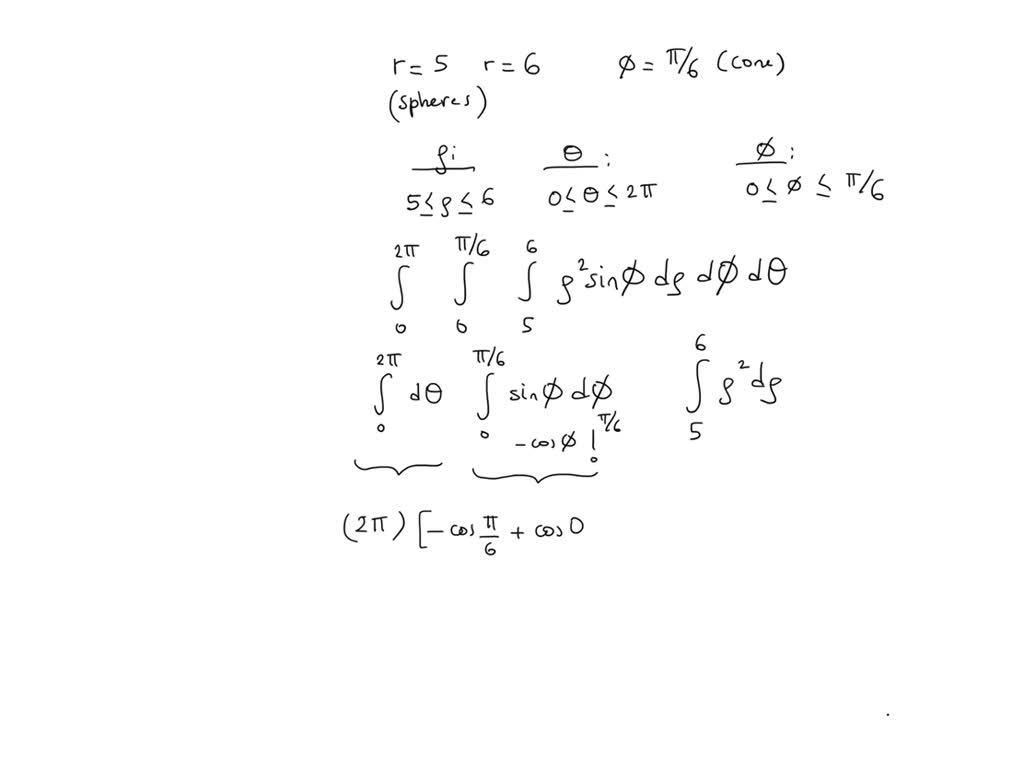 r = 5 r = 6 φ = π/6 (cone)
(spheres)
ρ: θ: φ:
5 ≤ ρ ≤ 6 0 ≤ θ ≤ 2π 0 ≤ φ ≤ π/6
∫₀^{2π} ∫₀^{π/6} ∫₅^{6} ρ² sinφ dρ dφ dθ
∫₀^{2π} dθ ∫₀^{π/6} sinφ dφ ∫₅^{6} ρ² dρ
-cosφ |₀^{π/6}
(2π) [-cos π/6 + cos 0